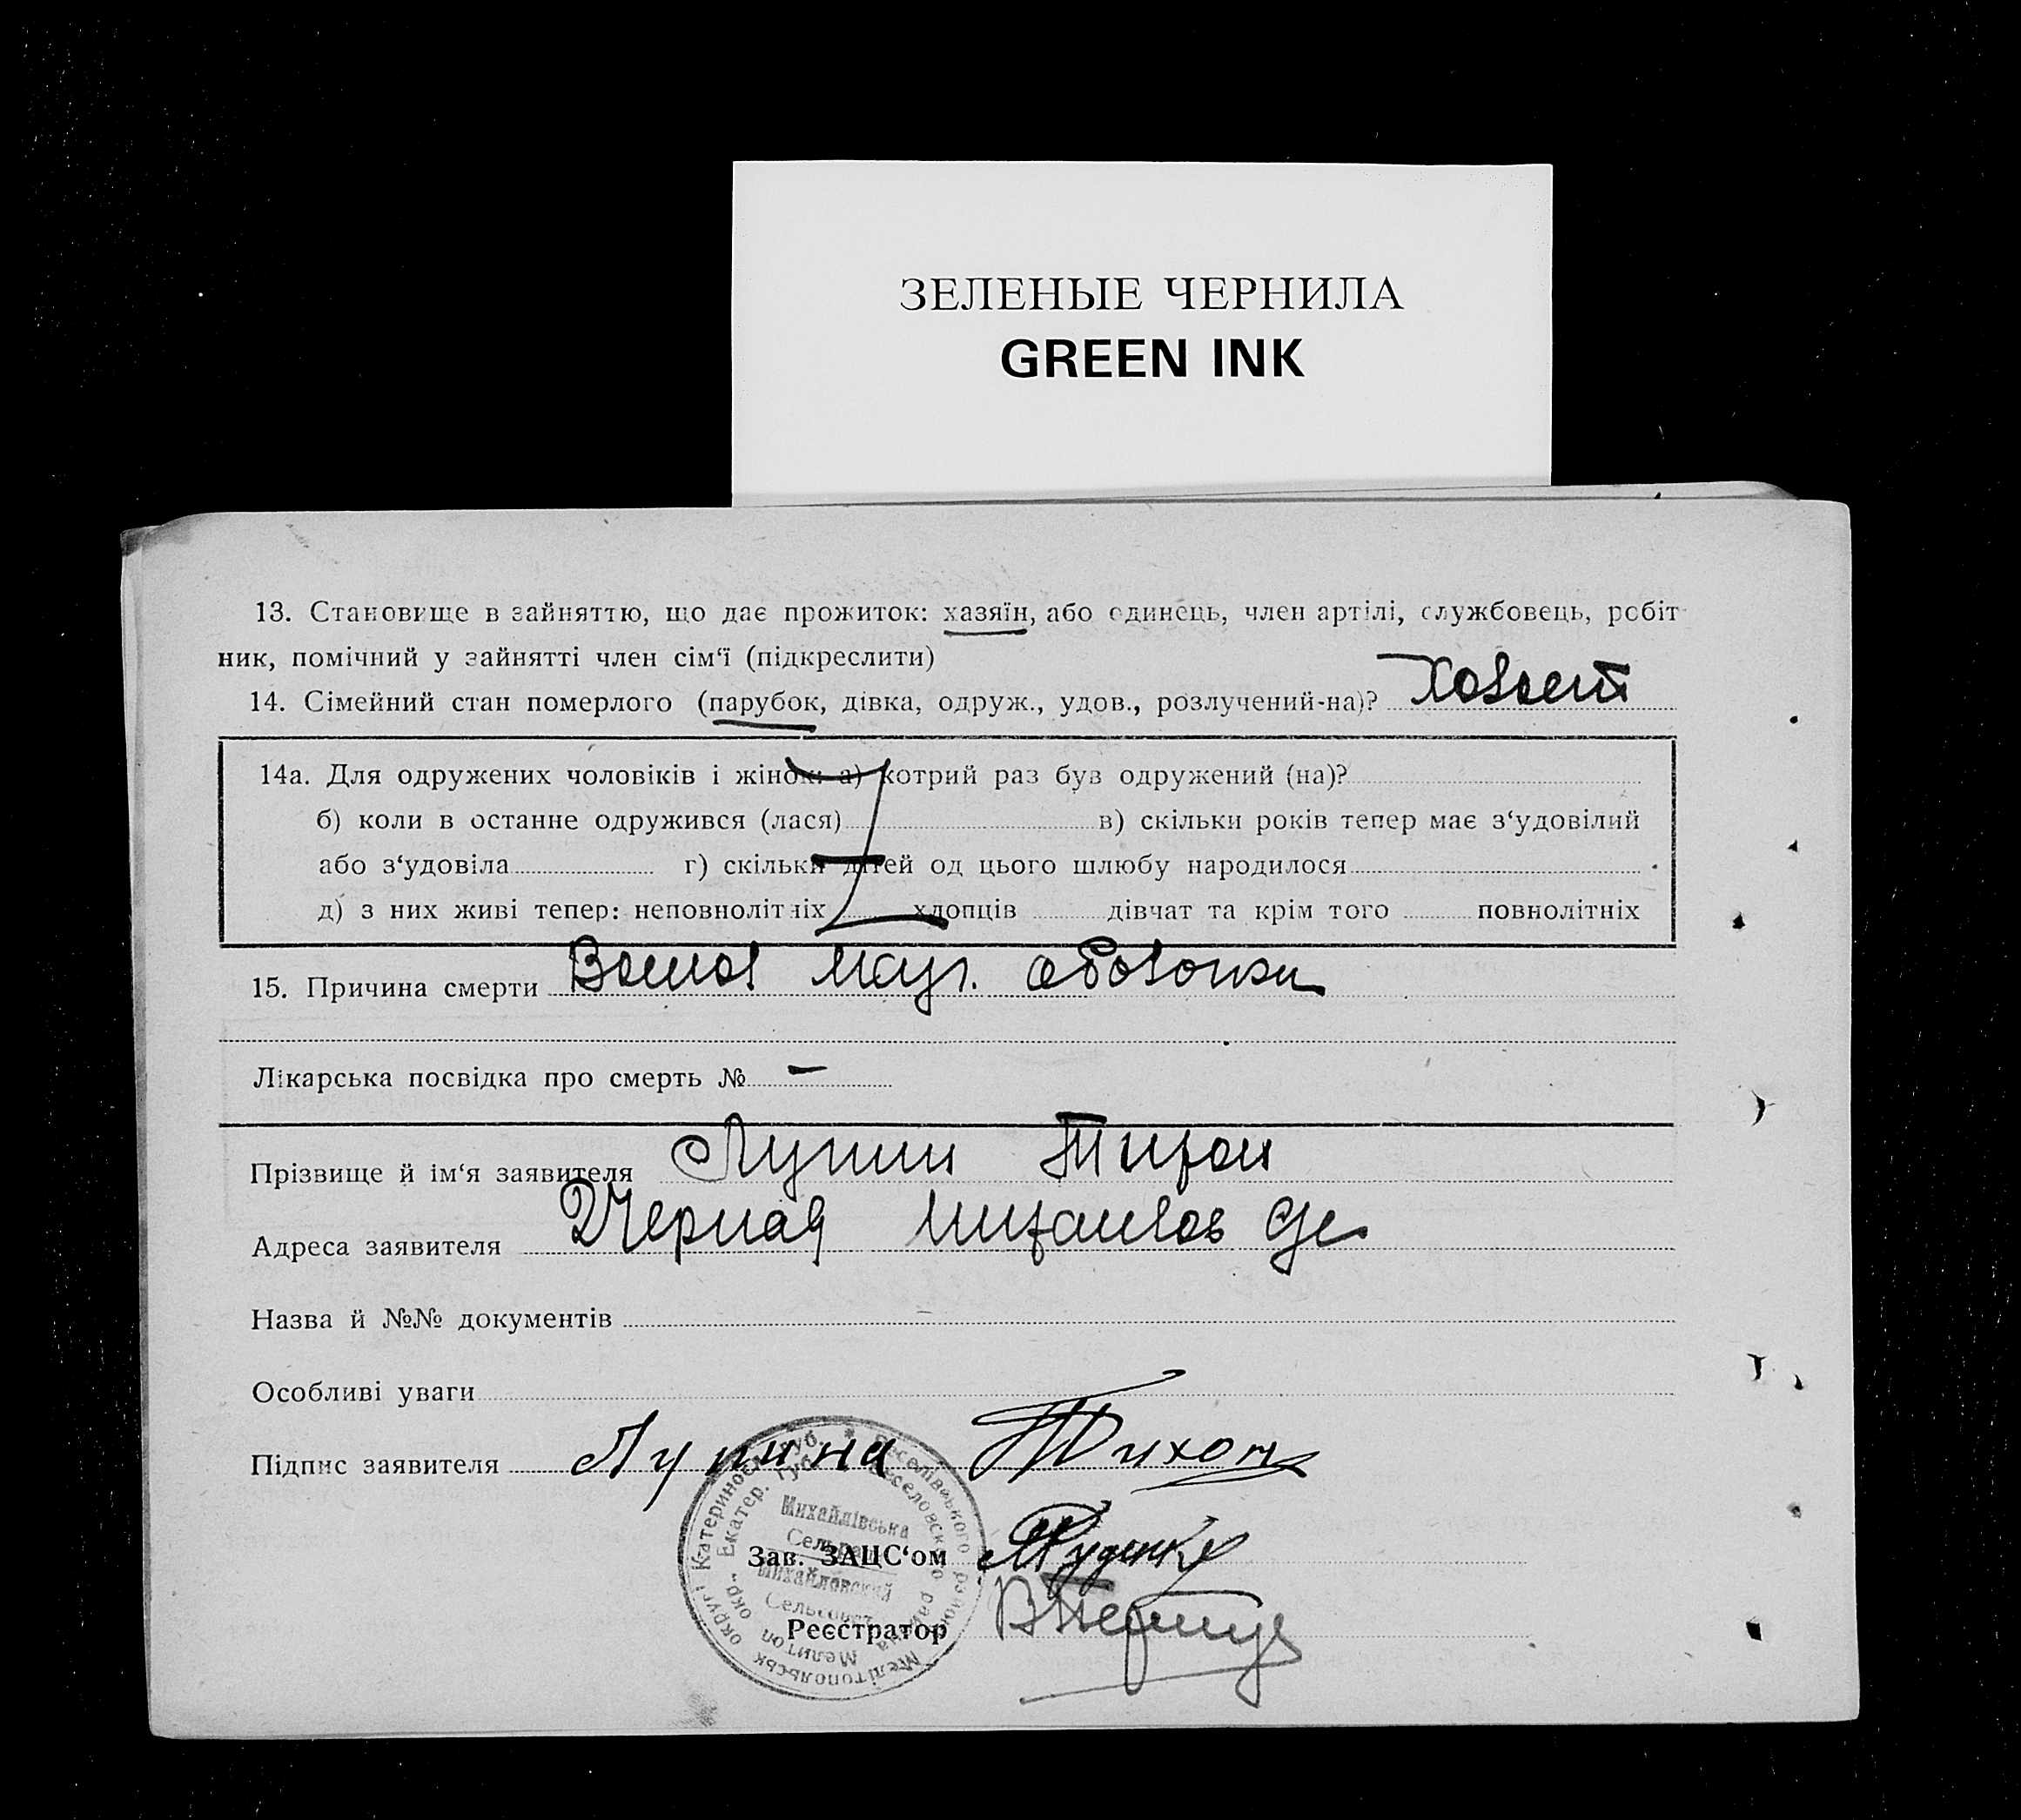 ЗЕЛЕНЫЕ ЧЕРНИЛА
GREEN INK
13. Становище в зайняттю, що дає прожиток: хазяїн, або одинець, член артілі, службовець, робіт-
ник, помічний у зайнятті член сім‘ї (підкреслити)
14. Сімейний стан померлого (парубок, дівка, одруж., удов., розлучений-на)?
14а. Для одружених чоловіків і жінок: а) котрий раз був одружений (на)?
б) коли в останне одружився (лася) в) скільки років тепер має з‘удовілий
або з‘удовіла г) скільки дітей од цього шлюбу народилося
д) з них живі тепер: неповнолітніх хлопців дівчат та крім того повнолітніх
15. Причина смерти
Лікарська посвідка про смерть № –
Прізвище й ім‘я заявителя Лупин Тихон
Адреса заявителя Черная
Назва й №№ документів
Особливі уваги
Підпис заявителя Лупина Тихон
Катериносл. губ. Веселівського району Мелітопольськ. округ
Екатер. губ. Веселовского района Мелитоп. окр.
Михайлівська
Сельрада
Михайловский
Сельсовет
Зав. ЗАЦС‘ом Руденко
Реєстратор